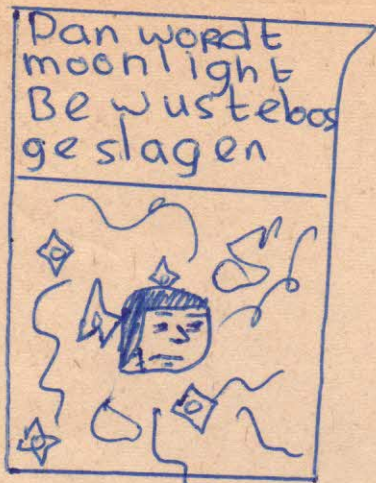 Dan wordt
moonlight
Bewusteloos
geslagen